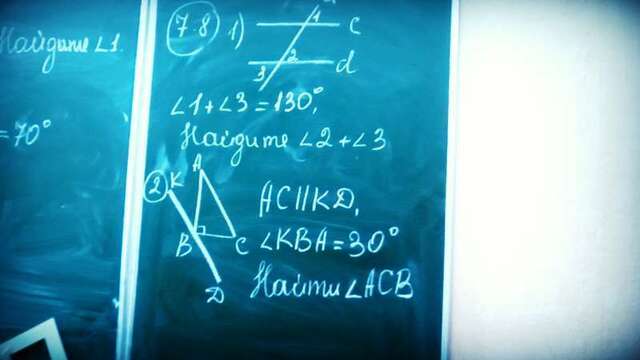 Найдите ∠1.
=70°
7-8 1)
1
c
2
3
d
∠1+∠3=130°,
Найдите ∠2+∠3
2
K
A
B
C
D
AC||KD,
∠KBA=30°
Найти ∠ACB